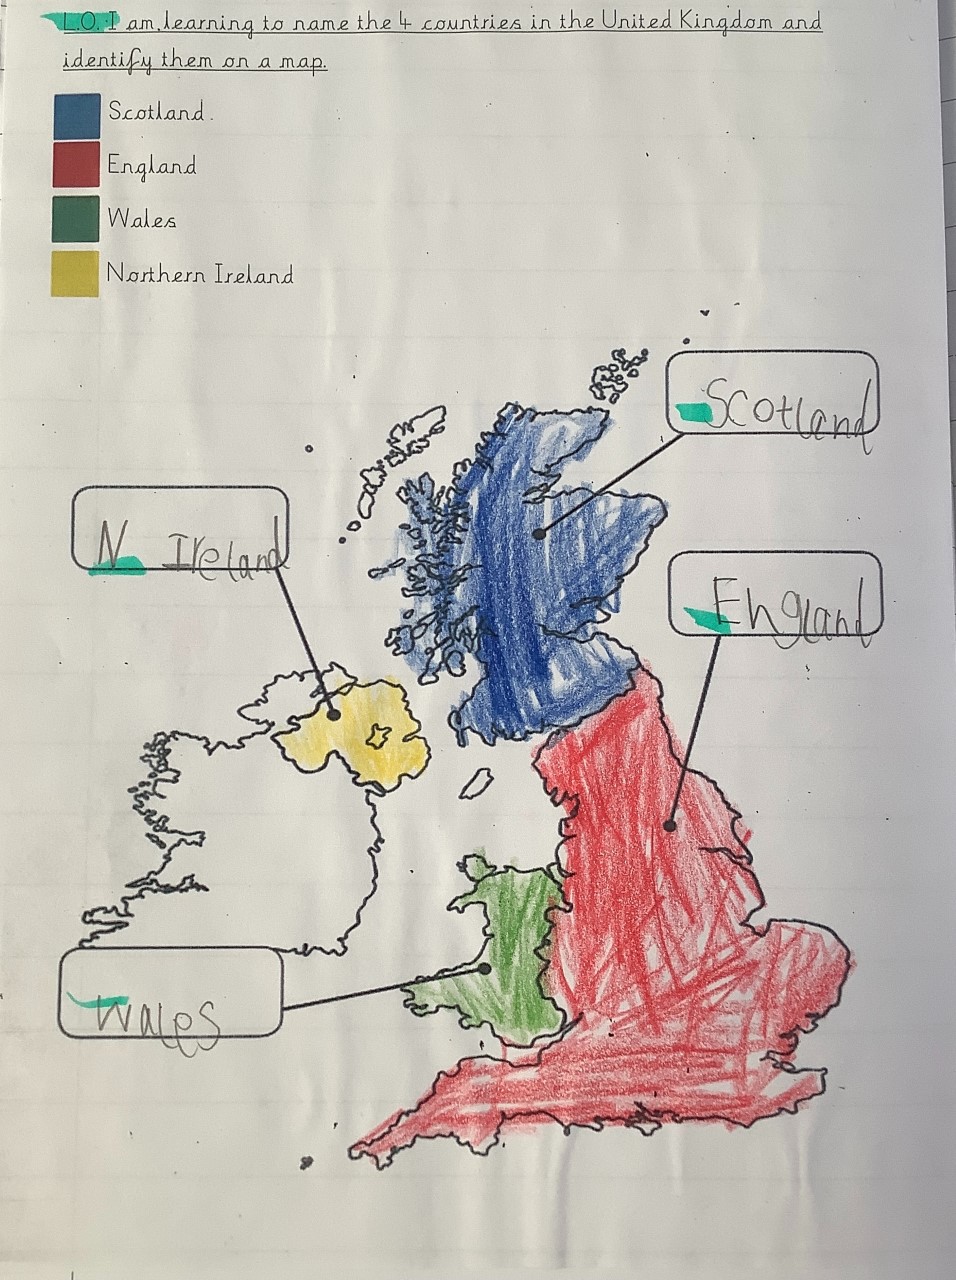 L.O. I am learning to name the 4 countries in the United Kingdom and
identify them on a map.
Scotland
England
Wales
Northern Ireland
Scotland
N Ireland
England
Wales